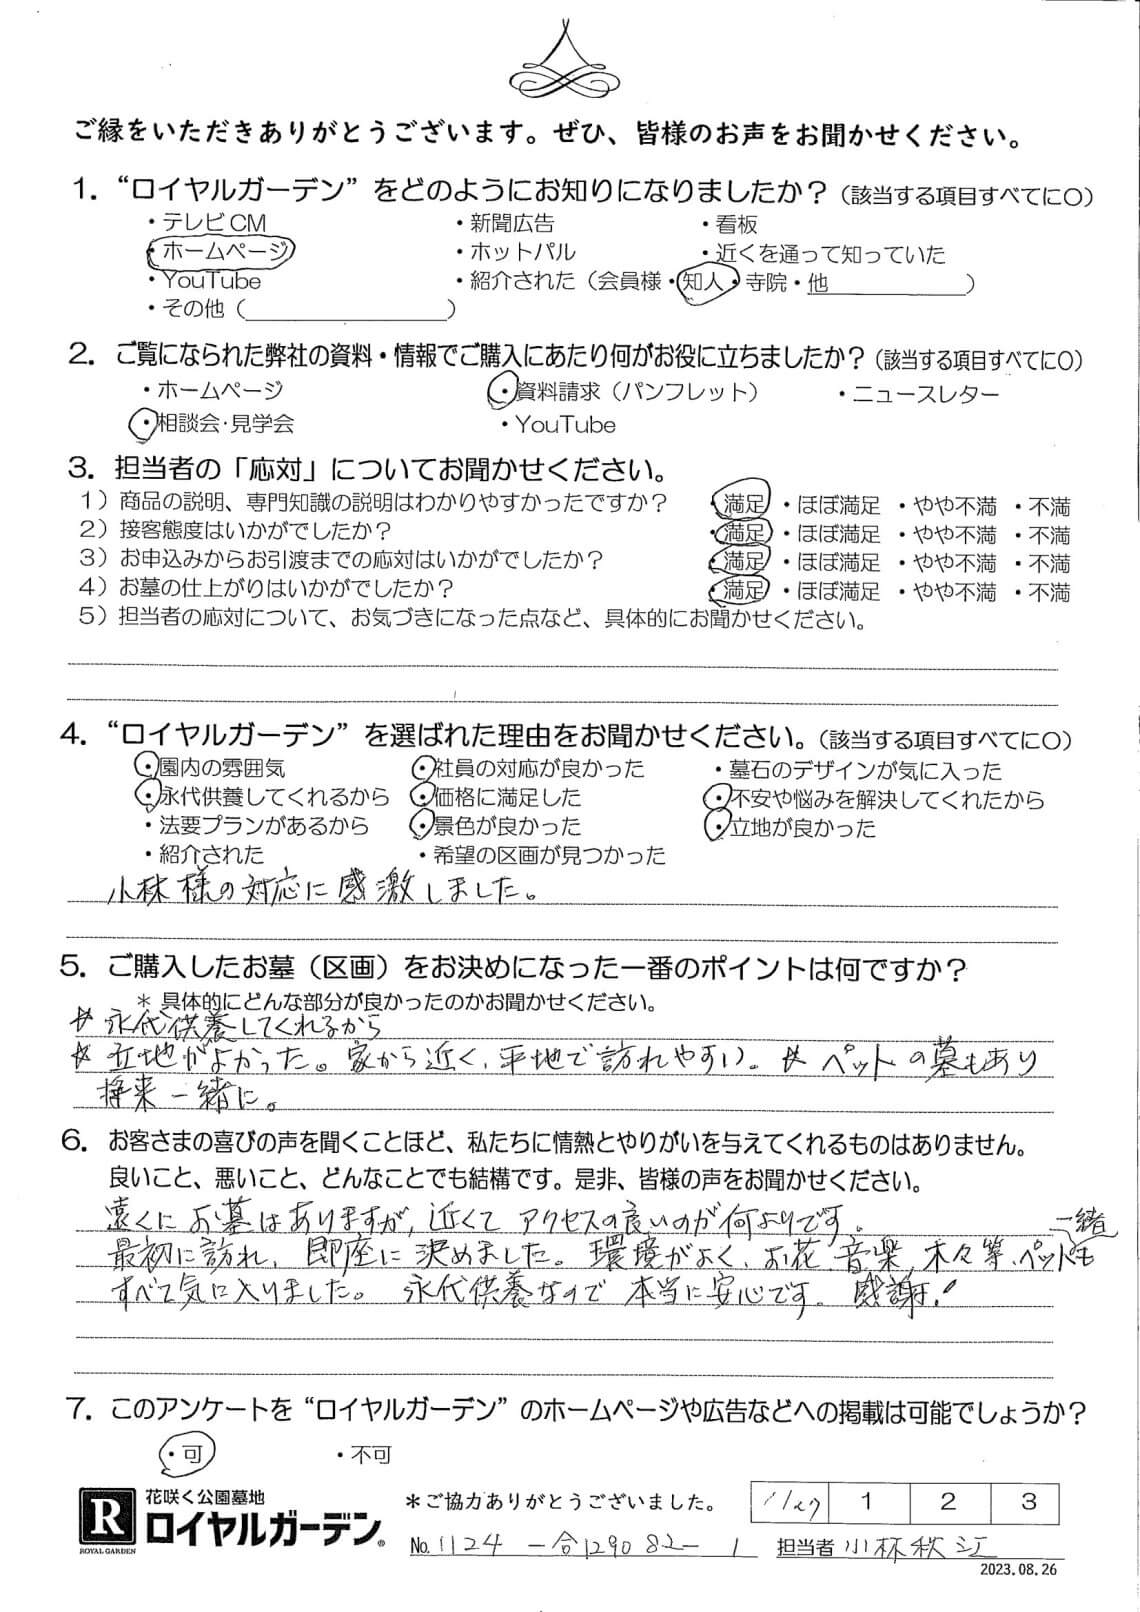 ご縁をいただきありがとうございます。ぜひ、皆様のお声をお聞かせください。
1. “ロイヤルガーデン”をどのようにお知りになりましたか？（該当する項目すべてに○）
・テレビCM ・新聞広告 ・看板
・ホームページ ・ホットパル ・近くを通って知っていた
・YouTube ・紹介された（会員様・知人・寺院・他 ）
・その他（ ）
2. ご覧になられた弊社の資料・情報でご購入にあたり何がお役に立ちましたか？（該当する項目すべてに○）
・ホームページ ・資料請求（パンフレット） ・ニュースレター
・相談会・見学会 ・YouTube
3. 担当者の「応対」についてお聞かせください。
1）商品の説明、専門知識の説明はわかりやすかったですか？ ・満足 ・ほぼ満足 ・やや不満 ・不満
2）接客態度はいかがでしたか？ ・満足 ・ほぼ満足 ・やや不満 ・不満
3）お申込みからお引渡までの応対はいかがでしたか？ ・満足 ・ほぼ満足 ・やや不満 ・不満
4）お墓の仕上がりはいかがでしたか？ ・満足 ・ほぼ満足 ・やや不満 ・不満
5）担当者の応対について、お気づきになった点など、具体的にお聞かせください。
4. “ロイヤルガーデン”を選ばれた理由をお聞かせください。（該当する項目すべてに○）
・園内の雰囲気 ・社員の対応が良かった ・墓石のデザインが気に入った
・永代供養してくれるから ・価格に満足した ・不安や悩みを解決してくれたから
・法要プランがあるから ・景色が良かった ・立地が良かった
・紹介された ・希望の区画が見つかった
小林様の対応に感激しました。
5. ご購入したお墓（区画）をお決めになった一番のポイントは何ですか？
＊具体的にどんな部分が良かったのかお聞かせください。
＊永代供養してくれるから
＊立地がよかった。家から近く、平地で訪れやすい。＊ペットの墓もあり
将来一緒に。
6. お客さまの喜びの声を聞くことほど、私たちに情熱とやりがいを与えてくれるものはありません。
良いこと、悪いこと、どんなことでも結構です。是非、皆様の声をお聞かせください。
遠くにお墓はありますが、近くてアクセスの良いのが何よりです。
最初に訪れ、即座に決めました。環境がよく、お花、音楽、木々等、ペットも一緒
すべて気に入りました。永代供養なので本当に安心です。感謝！
7. このアンケートを“ロイヤルガーデン”のホームページや広告などへの掲載は可能でしょうか？
・可 ・不可
R ROYAL GARDEN 花咲く公園墓地 ロイヤルガーデン®
＊ご協力ありがとうございました。 11/27 1 2 3
No. 1124 －合129082－1 担当者 小林秋江
2023.08.26